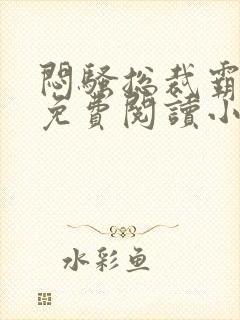 悶騷总裁霸
免費閱讀小
水彩鱼